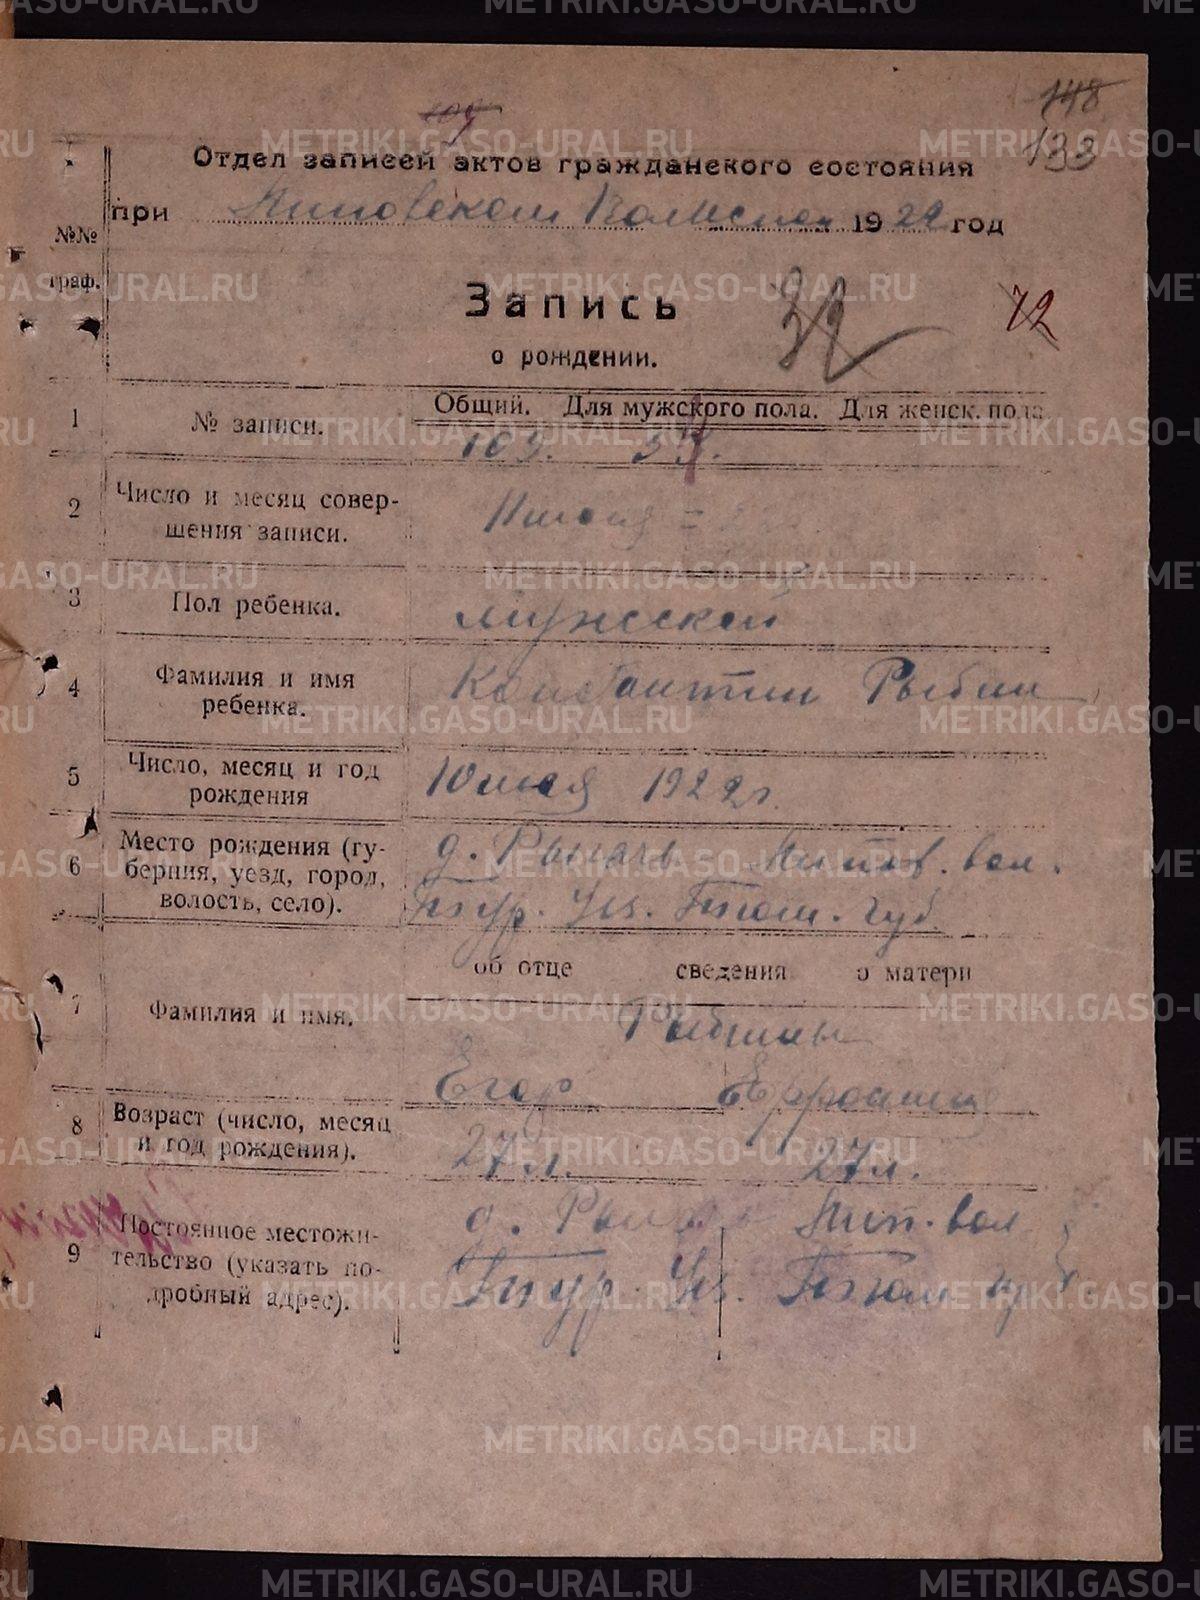 148
133
109
Отдел записей актов гражданского состояния
при Липовском Волисполк 1922 год
№№ граф.
Запись
о рождении.
32
72
1 № записи. Общий. Для мужского пола. Для женск. пола
109.
2 Число и месяц совершения записи.
3 Пол ребенка. мужской
4 Фамилия и имя ребенка. Константин Рыбин
5 Число, месяц и год рождения
1922 г.
6 Место рождения (губерния, уезд, город, волость, село).
д. Липов. вол.
Тур. Уез. Тюм. губ.
об отце сведения о матери
7 Фамилия и имя. Рыбины
Егор Ефросинья
8 Возраст (число, месяц и год рождения). 27 л. 27 л.
9 Постоянное местожительство (указать подробный адрес).
д. Лип. вол
Тур. Уез. Тюм губ.
METRIKI.GASO-URAL.RU